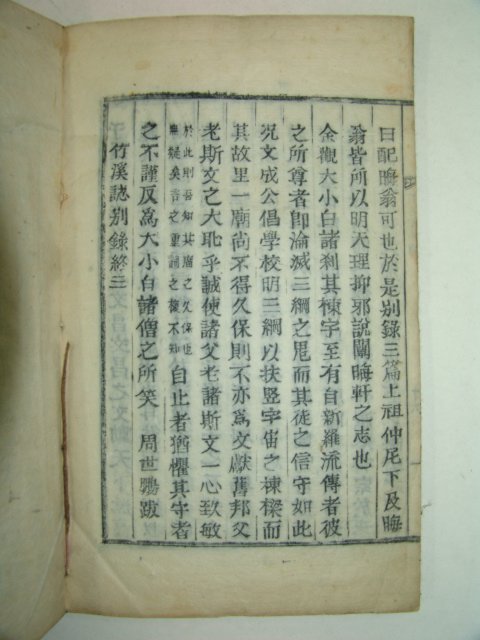 曰配晦翁可也於是別錄三篇上祖仲尼下及晦
翁皆所以明天理抑邪說闡晦軒之志也
金觀大小白諸刹其棟宇至有自新羅流傳者彼
之所尊者卽淪滅三綱之鬼而其徒之信守如此
況文成公倡學校明三綱以扶竪宇宙之棟樑而
其故里一廟尙不得久保則不亦爲文獻舊邦父
老斯文之大恥乎誠使諸父老諸斯文一心致敏
於此則吾知其廟之久保也
無疑矣言之重詞之複不知
自止者猶懼其守者
之不謹反爲大小白諸僧之所笑 周世鵬跋
竹溪誌別錄終三